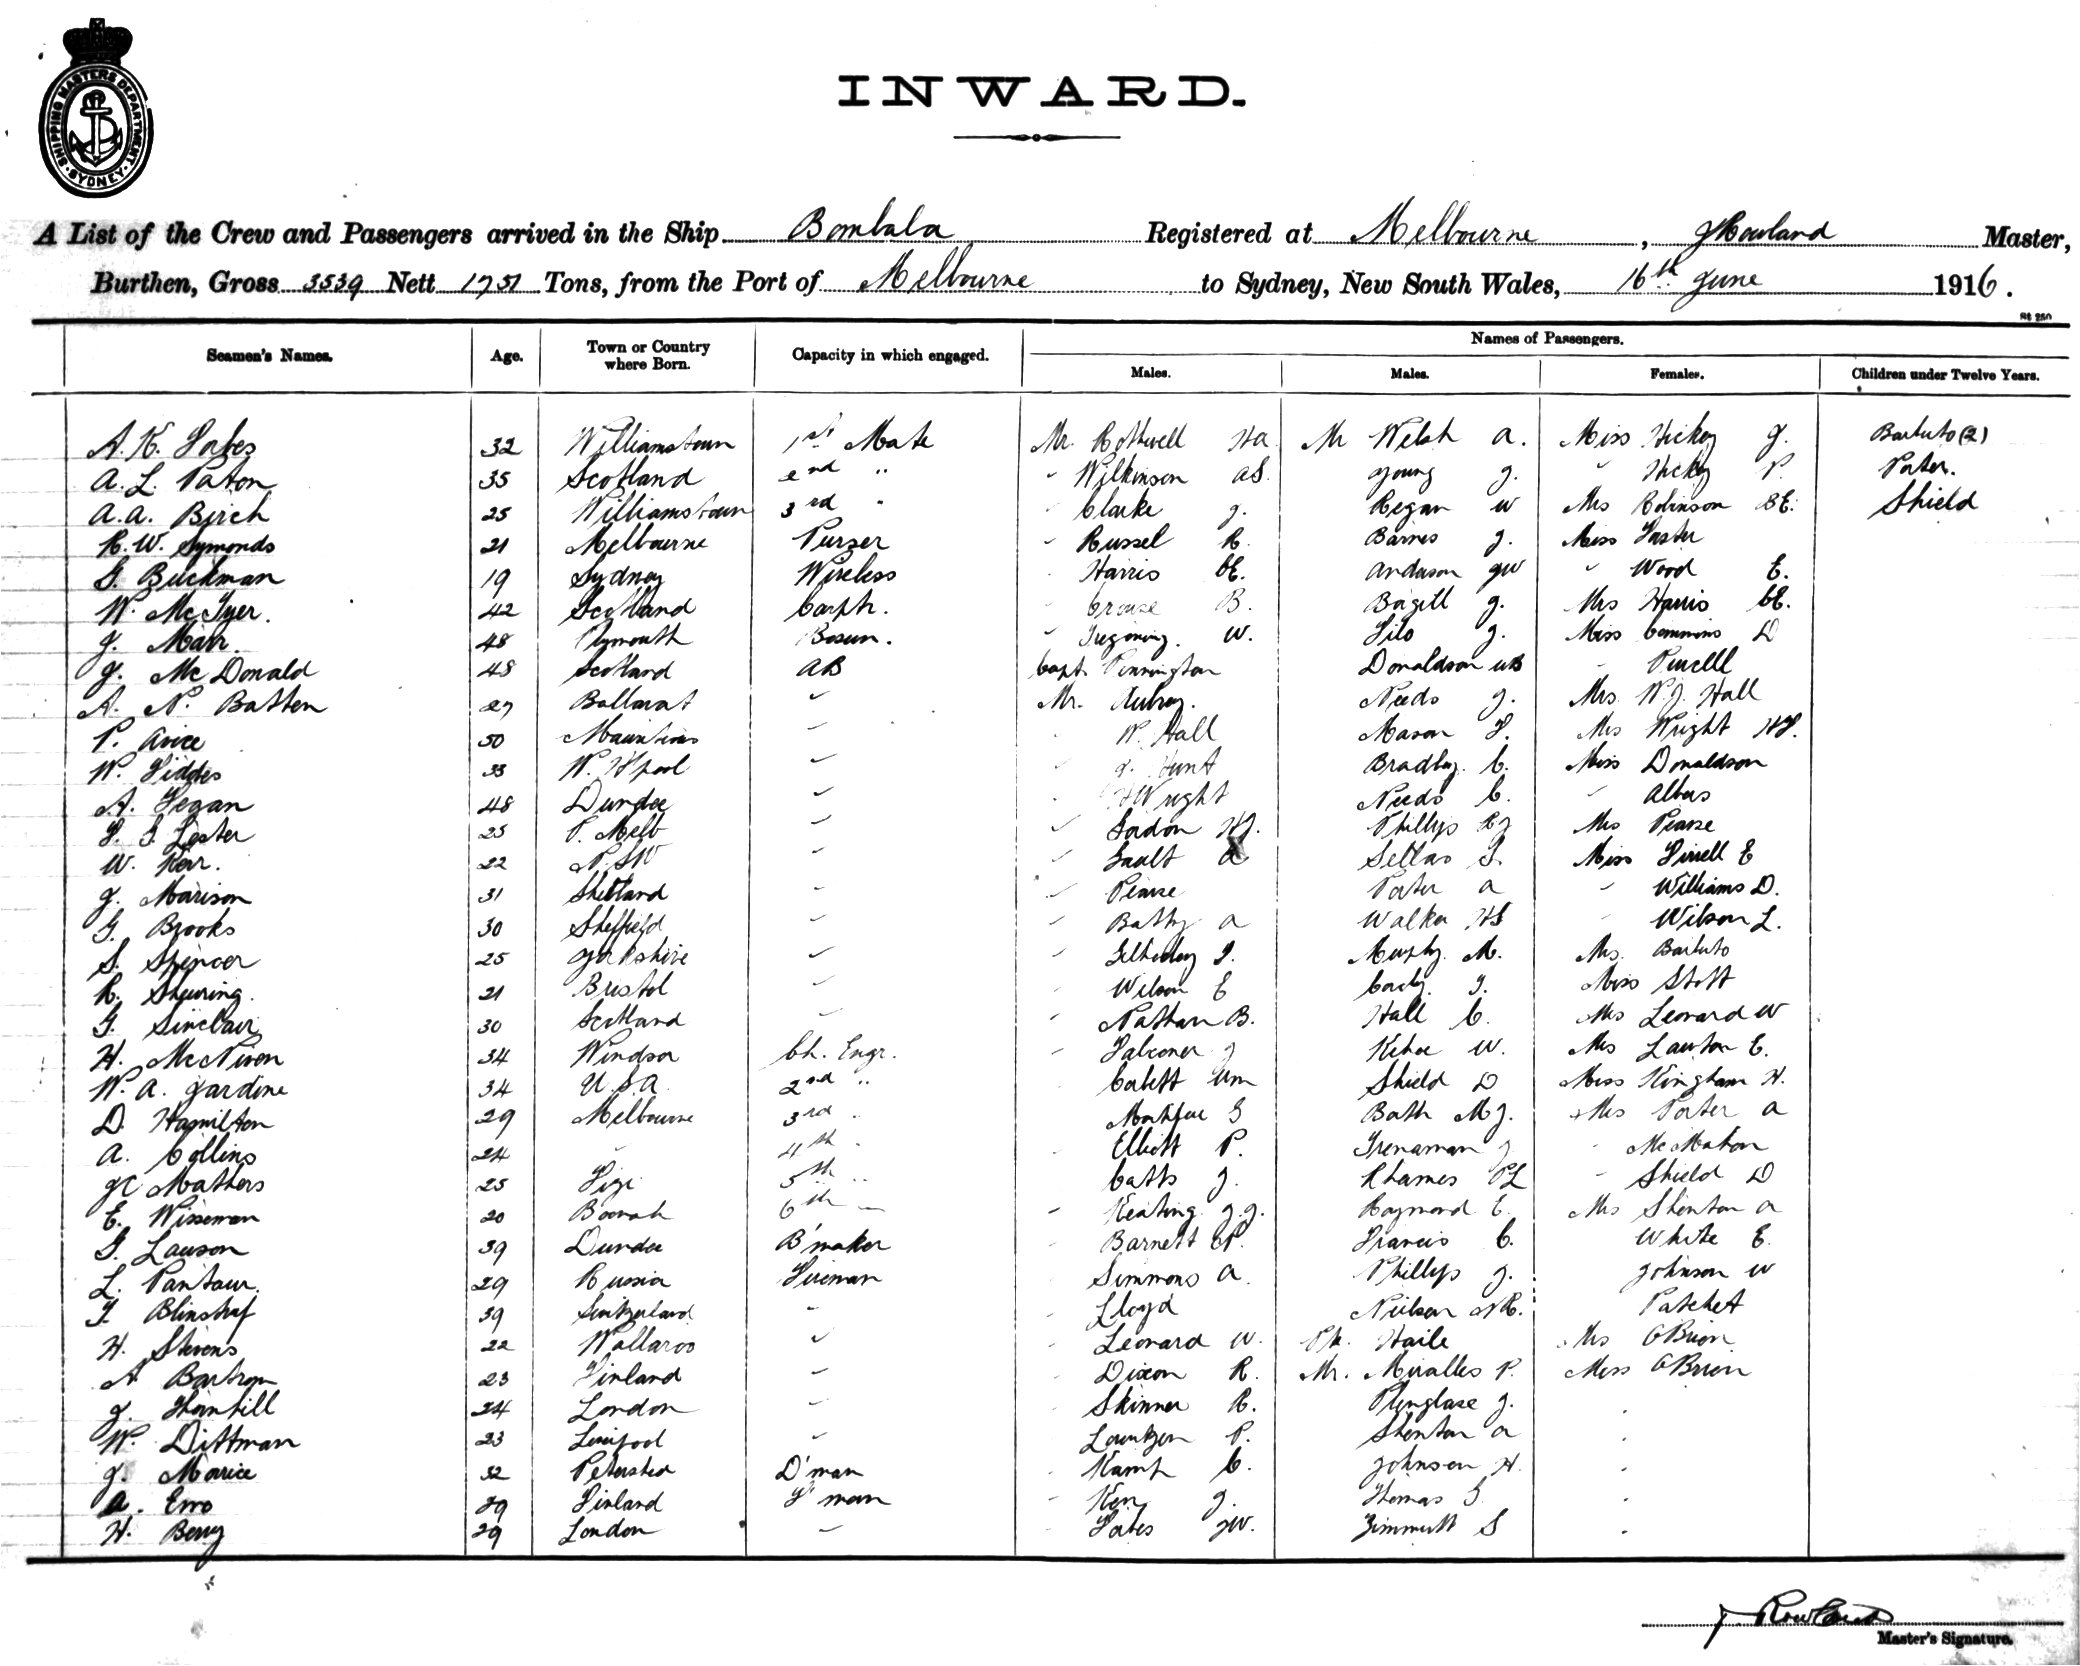 SHIPPING MASTERS DEPARTMENT · SYDNEY ·
INWARD.
A List of the Crew and Passengers arrived in the Ship Bombala Registered at Melbourne, J Rowland Master,
Burthen, Gross 3539 Nett 1751 Tons, from the Port of Melbourne to Sydney, New South Wales, 16th June 1916.
Names of Passengers.
Seamen's Names. Age. Town or Country where Born. Capacity in which engaged. Males. Males. Females. Children under Twelve Years.
32 Williamstown 1st Mate Mr. Rothwell HA Mr Welsh A. Miss Hickey G. Barbuto (2)
A. L. Paton 35 Scotland 2nd " " Wilkinson AS. Young J. " Hickey P. Pater.
A. A. Birch 25 Williamstown 3rd " " Clarke J. Regan W Mrs Robinson BE. Shield
R. W. Symonds 21 Melbourne Purser " Russel R. Barnes J. Miss Foster
G. Buckman 19 Sydney Wireless " Harris CE. Anderson JW " Wood E.
W. McIyer. 42 Scotland Carptr. " Crouse B. J. Mrs Harris CE.
J. Marr. 48 Plymouth Bosun. " Tregoning. W. J. Miss Commins D
J. McDonald 48 Scotland AB Capt. Pennington Donaldson WB "
A. N. Batten 27 Ballarat " Mr. Aubrey. Needs J. Mrs W. J. Hall
P. Avice 50 Mauritius " " W. Hall Mason F. Mrs Wright HF.
W. Fiddes 33 W. H'pool " " J. Hunt Bradley. C. Miss Donaldson
A. Fegan 48 Dundee " " H Wright Needs C. " Albers
F. G. Lester 25 P. Melb " " Gordon HJ. Phillips RJ Mrs Pearse
W. Kerr. 22 N.SW " " Gault A Sellar G. Miss Firrell E
J. Marison 31 Shetland " " Pearse Pater A " Williams D.
G. Brooks 30 Sheffield " " Batty A Walker HS " Wilson L.
S. Spencer 25 Yorkshire " " J. Murphy. M. Mrs. Barbuto
R. Shearing. 21 Bristol " " Wilson E Cody. J. Miss Stott
G. Sinclair 30 Scotland " " Nathan B. Hall C. Mrs Leonard W
H. McNiven 34 Windsor Ch. Engr. " Falconer J Kehoe W. Mrs Lawton E.
W. A. Jardine 34 U.S.A. 2nd " " Corbett Wm Shield D Miss Kingham H.
D. Hamilton 29 Melbourne 3rd " " G Bath M J. Mrs Pater A
A. Collins 24 " 4th " Elliott P. Trenaman J " McMahon
JC Mathers 25 Fiji 5th " " Catts J. Rhames PL " Shield D
E. Wiseman 20 Boonah 6th " " Keating J.J. Raymond E. Mrs Shenton A
G. Lawson 39 Dundee B'maker " Barnett CP. Francis C. White E.
L. Pantaur. 29 Russia Fireman " Simmons A. Phillips J. Johnson W
39 Switzerland " " Lloyd Neilsen NR. Patchet
H. Stevens 22 Wallaroo " " Leonard W. Haile Mrs O'Brien
A Bartrom 23 Finland " " Dixon R. Mr. Miralles P. Miss O'Brien
J. Thornhill 24 London " " Skinner R. Penglase J.
W. Dittman 23 Liverpool " " P. Shenton A
J. Morice 32 Peterhead D'man " Kamp C. Johnson H.
A. Erro 29 Finland F'man " J. Thomas G.
H. Berry 29 London " " Fates JW. Zimmett S
J. Rowland
Master's Signature.